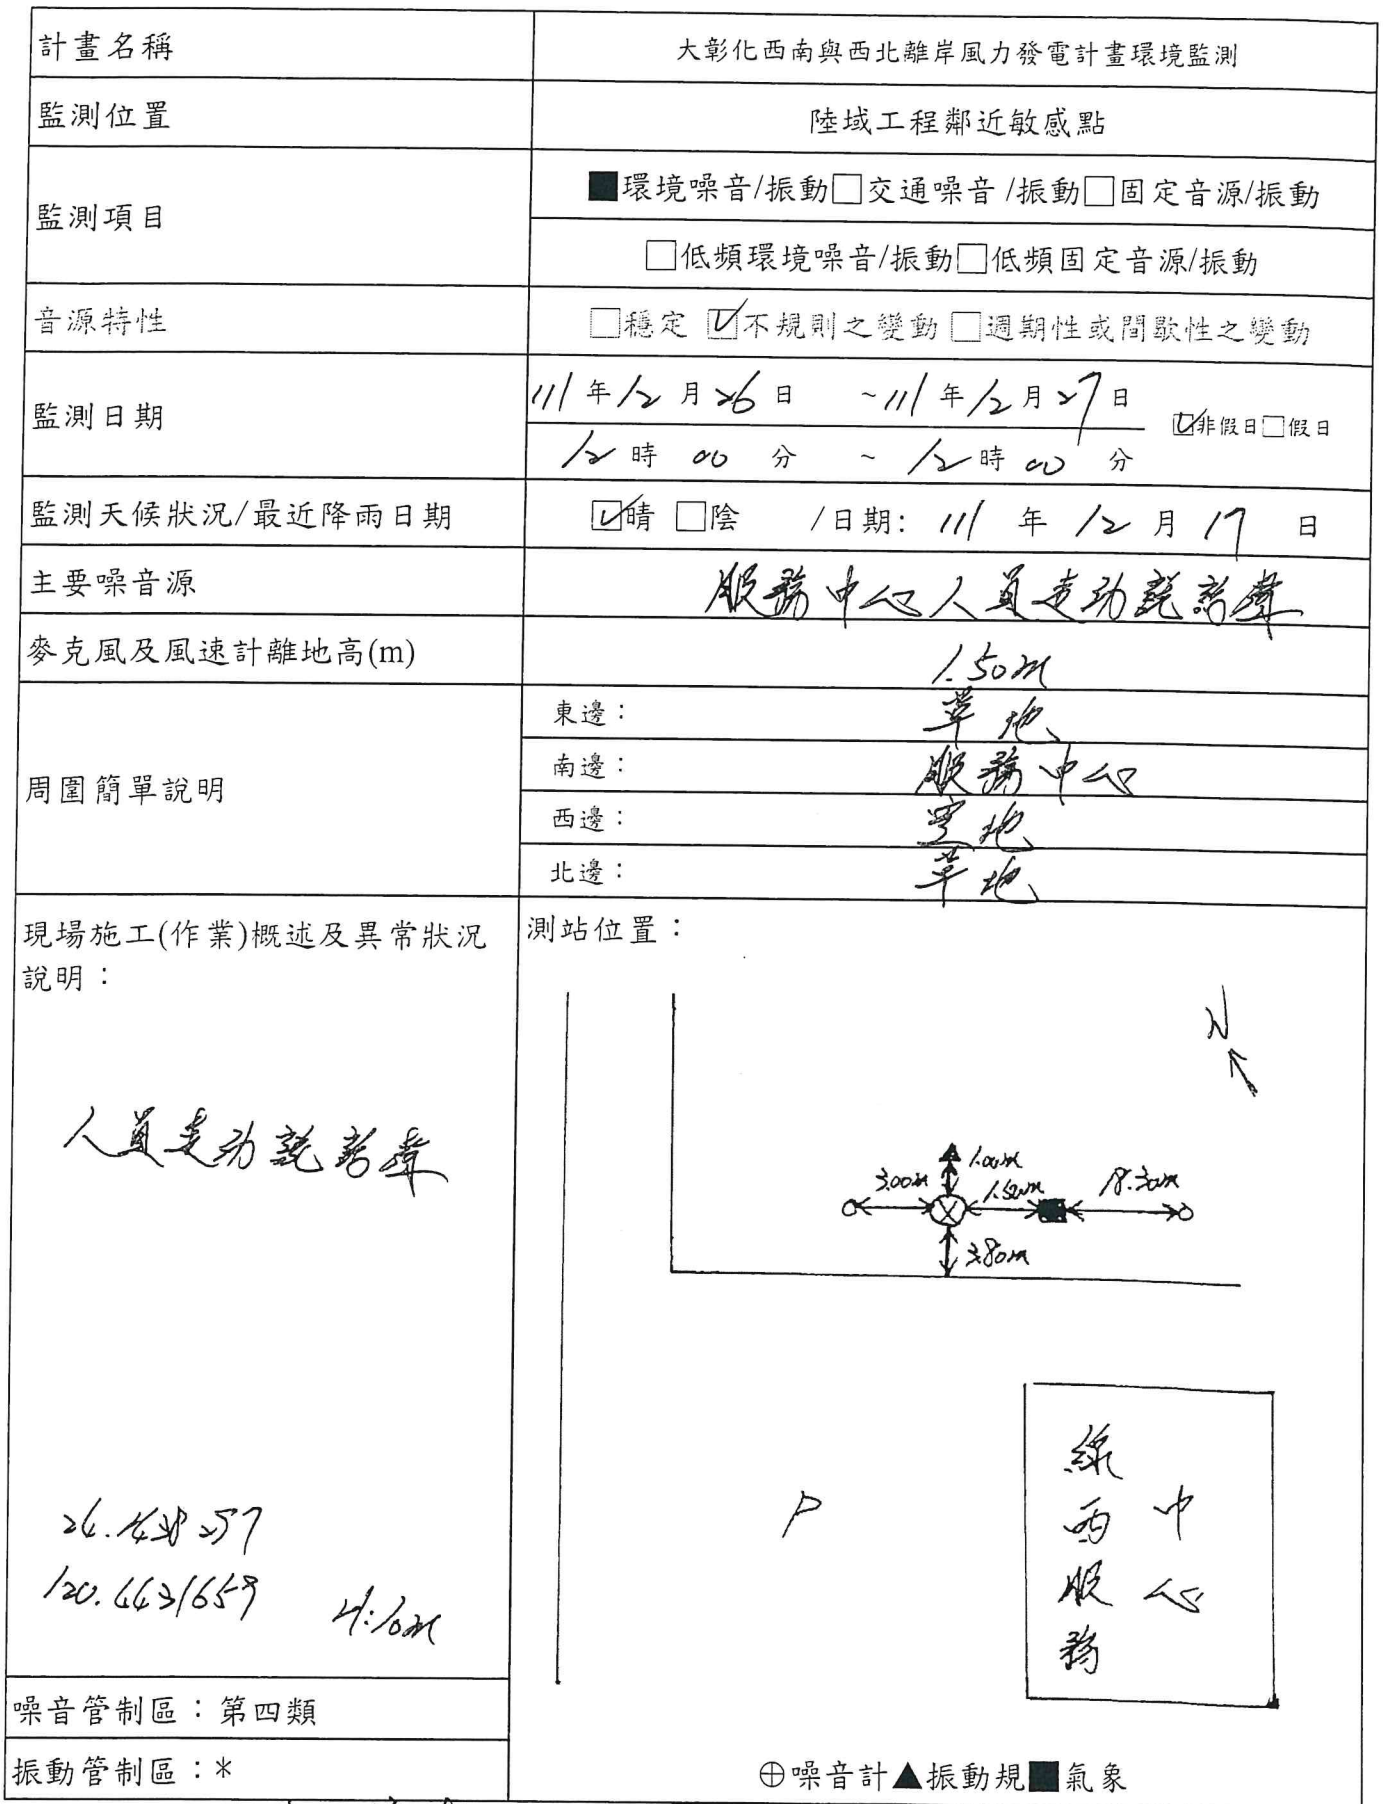 計畫名稱 大彰化西南與西北離岸風力發電計畫環境監測
監測位置 陸域工程鄰近敏感點
監測項目
■環境噪音/振動□交通噪音/振動□固定音源/振動
□低頻環境噪音/振動□低頻固定音源/振動
音源特性 □穩定 ☑不規則之變動 □週期性或間歇性之變動
監測日期
111年12月26日 ~111年12月27日 ☑非假日□假日
12時00分 ~ 12時00分
監測天候狀況/最近降雨日期 ☑晴 □陰 /日期: 111年12月17日
主要噪音源 服務中心人員走動說話聲
麥克風及風速計離地高(m) 1.50m
周圍簡單說明
東邊: 草地
南邊: 服務中心
西邊: 空地
北邊: 草地
現場施工(作業)概述及異常狀況
說明:
人員走動說話聲
H:10m
噪音管制區:第四類
振動管制區:*
測站位置:
N
1.00m
3.00m 1.50m 18.30m
3.80m
P
線西服務
中心
⊕噪音計▲振動規■氣象